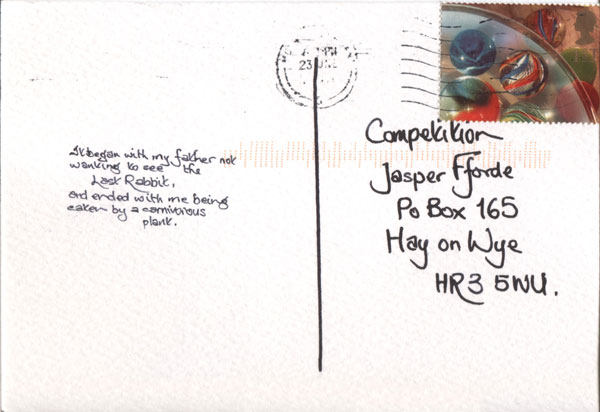 It began with my father not
wanking to see the
Last Rabbit,
and ended with me being
eaten by a carnivorous
plank.
23
Competition
Jasper Fforde
Po Box 165
Hay on Wye
HR3 5WU.